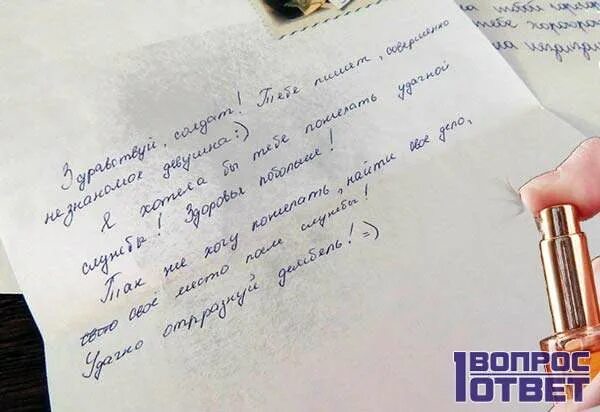 Здравствуй, солдат! Тебе пишет, совершенно
незнакомая девушка:)
Я хотела бы тебе пожелать удачной
службы! Здоровья побольше!
Так же хочу пожелать, найти свое дело,
свое место после службы!
Удачно отпразднуй дембель! =)
тебе
1 ВОПРОС
ОТВЕТ